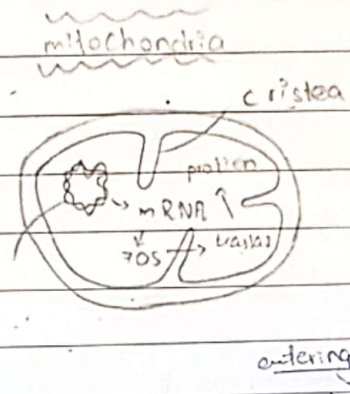 mitochondria
cristea
protien
mRNA
70S
entering